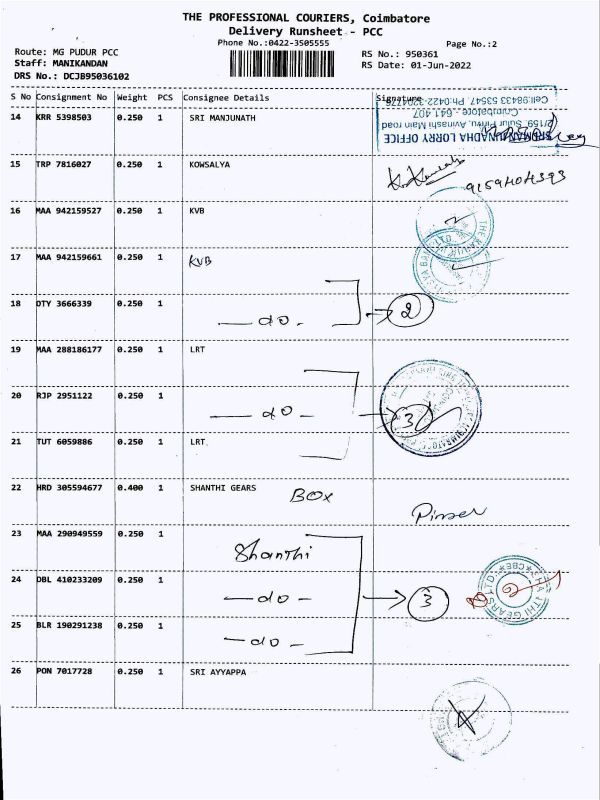 THE PROFESSIONAL COURIERS, Coimbatore
Delivery Runsheet - PCC
Phone No.:0422-3505555
Page No.:2
Route: MG PUDUR PCC
RS No.: 950361
Staff: MANIKANDAN
RS Date: 01-Jun-2022
DRS No.: DCJB95036102
S No Consignment No Weight PCS Consignee Details Signature
14 KRR 5398503 0.250 1 SRI MANJUNATH
SRI MANJUNADHA LORRY OFFICE
2/159, Sulur Pirivu, Avinashi Main road
Coimbatore - 641 407
Cell:98433 53547, Ph:0422-
15 TRP 7816027 0.250 1 KOWSALYA
9159404393
16 MAA 942159527 0.250 1 KVB
17 MAA 942159661 0.250 1 KVB
18 OTY 3666339 0.250 1 — do. — 2
19 MAA 288186177 0.250 1 LRT
20 RJP 2951122 0.250 1 — do — 3
21 TUT 6059886 0.250 1 LRT
22 HRD 305594677 0.400 1 SHANTHI GEARS BOX
23 MAA 290949559 0.250 1 Shanthi
24 DBL 410233209 0.250 1 — do — 3
25 BLR 190291238 0.250 1 — do —
26 PON 7017728 0.250 1 SRI AYYAPPA